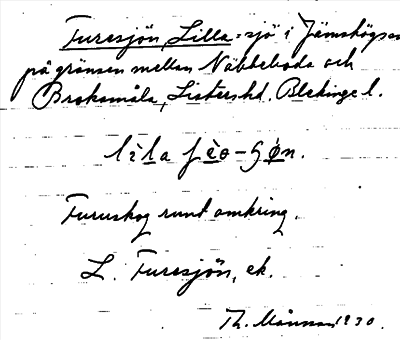 Furesjön, Lilla = sjö i Jämshögs sn
på gränsen mellan Näbbeboda och
Broksmåla, Listers hd. Blekinge l.
Furuskog runt omkring.
L. Furesjön, ek.
Th. 1930.